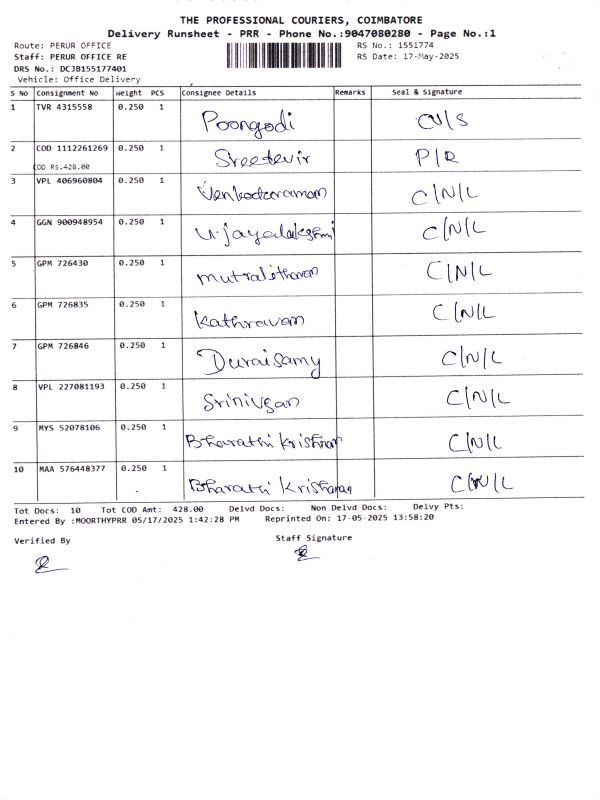 THE PROFESSIONAL COURIERS, COIMBATORE
Delivery Runsheet - PRR - Phone No.:9047080280 - Page No.:1
Route: PERUR OFFICE RS No.: 1551774
Staff: PERUR OFFICE RE RS Date: 17-May-2025
DRS No.: DCJB155177401
Vehicle: Office Delivery
S No Consignment No Weight PCS Consignee Details Remarks Seal & Signature
1 TVR 4315558 0.250 1 Poongodi
2 COD 1112261269 0.250 1 P/R
COD RS.428.00
3 VPL 406960804 0.250 1 Venkateraman C/N/L
4 GGN 900948954 0.250 1 U.jayalakshmi C/N/L
5 GPM 726430 0.250 1 C/N/L
6 GPM 726835 0.250 1 Kathravan C/N/L
7 GPM 726846 0.250 1 Duraisamy C/N/L
8 VPL 227081193 0.250 1 Srinivsan C/N/L
9 MYS 52078106 0.250 1 Bharathi Krishnan C/N/L
10 MAA 576448377 0.250 1 Bharathi Krishanan C/N/L
Tot Docs: 10 Tot COD Amt: 428.00 Delvd Docs: Non Delvd Docs: Delvy Pts:
Entered By :MOORTHYPRR 05/17/2025 1:42:28 PM Reprinted On: 17-05-2025 13:58:20
Verified By Staff Signature